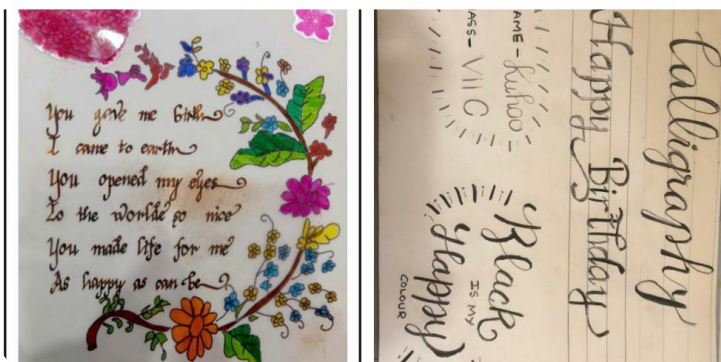 You gave me birth
I came to earth
You opened my eyes
To the worlde so nice
You made life for me
As happy as can be
Calligraphy
Happy Birthday
NAME - Kuhoo
CLASS - VII C
Black
IS MY
Happy
COLOUR